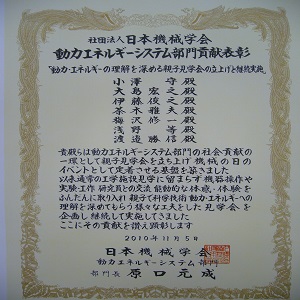 社団法人 日本機械学会
動力エネルギーシステム部門貢献表彰
「動力・エネルギーの理解を深める親子見学会の立上げと継続実施」
小澤 守 殿
大島 宏之 殿
伊藤 俊之 殿
茶木 雅夫 殿
梅沢 修一 殿
浅野 等 殿
渡邉 勝信 殿
貴殿らは動力エネルギーシステム部門の社会・貢献の
一環として親子見学会を立ち上げ 機械の日の
イベントとして定着させる基盤を築きました
以来通常の工学施設見学に留まらず 機器操作や
実験工作 研究員との交流 能動的な体感・体験を
ふんだんに取り入れ 親子で科学技術 動力・エネルギーへの
理解を深めてもらう様々な工夫をした見学会を
企画し継続して実施してきました
ここにその貢献を讃え顕彰します
2010年11月5日
日本機械学会
動力エネルギーシステム部門
部門長 原口元成